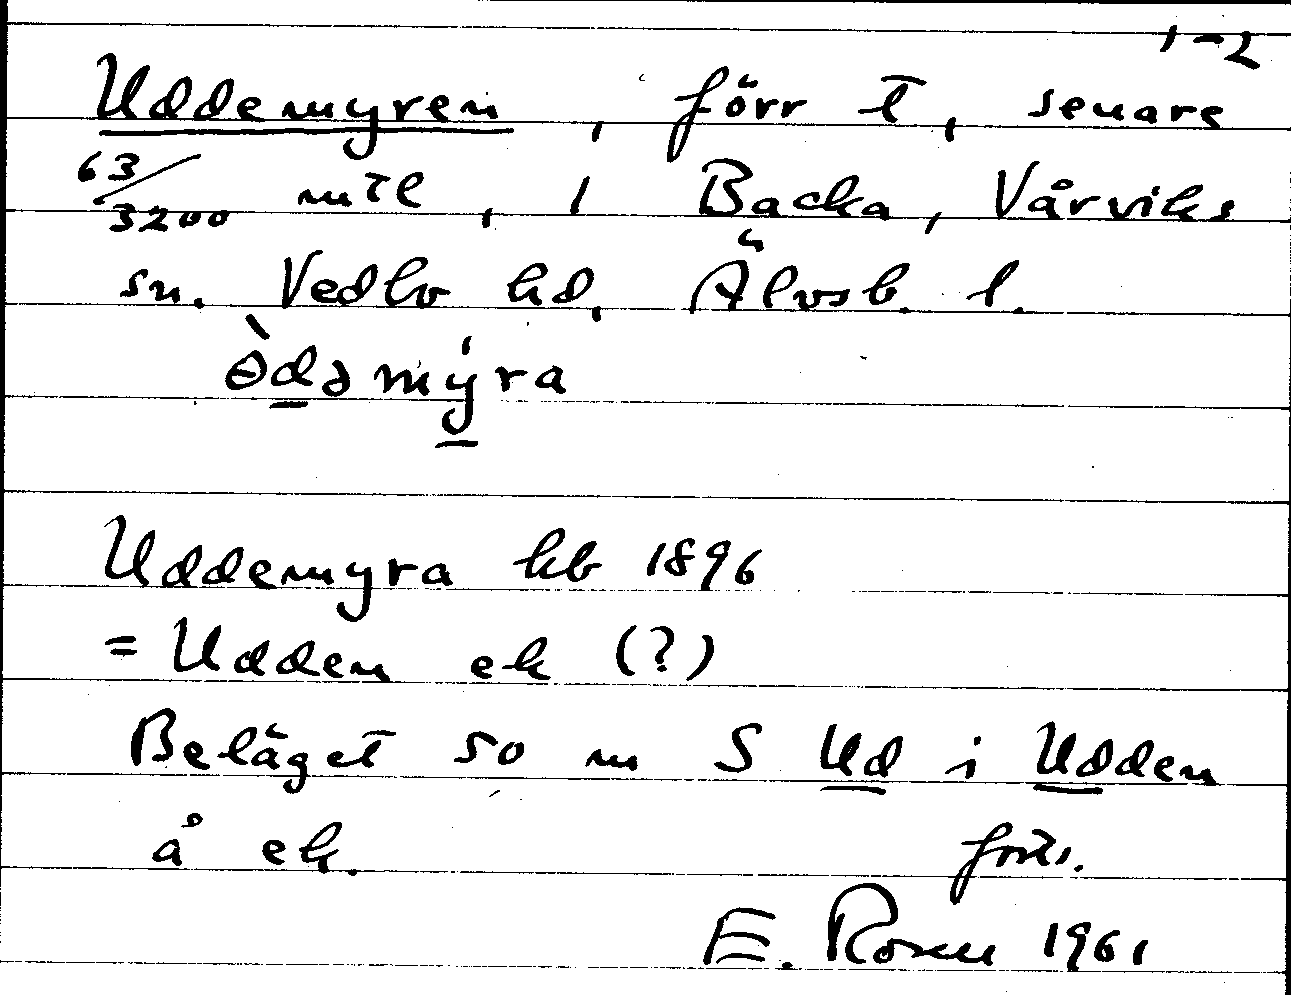 1-2
Uddemyren, förr t, senare
63/3200 mtl, i Backa, Vårviks
sn. Vedbo hd, Älvsb. l.
ɵ̀dəmýra
Uddemyra kb 1896
= Udden ek (?)
Beläget 50 m S Ud i Udden
å ek. forts.
E. Rosen 1961